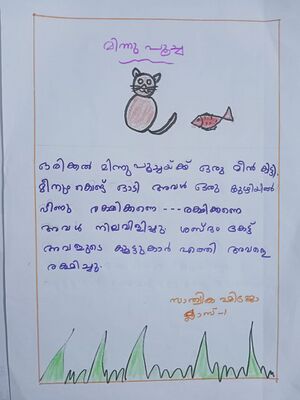 മിന്നു പൂച്ച
ഒരിക്കൽ മിന്നുപൂച്ചയ്ക്ക് ഒരു മീൻ കിട്ടി.
മീനും കൊണ്ട് ഓടി അവൾ ഒരു കുഴിയിൽ
വീണു രക്ഷിക്കണെ ---രക്ഷിക്കണെ
അവൾ നിലവിളിച്ചു. ശബ്ദം കേട്ട്
അവളുടെ കൂട്ടുകാർ എത്തി അവളെ
രക്ഷിച്ചു.
സാന്ത്വിക
ക്ലാസ്-1